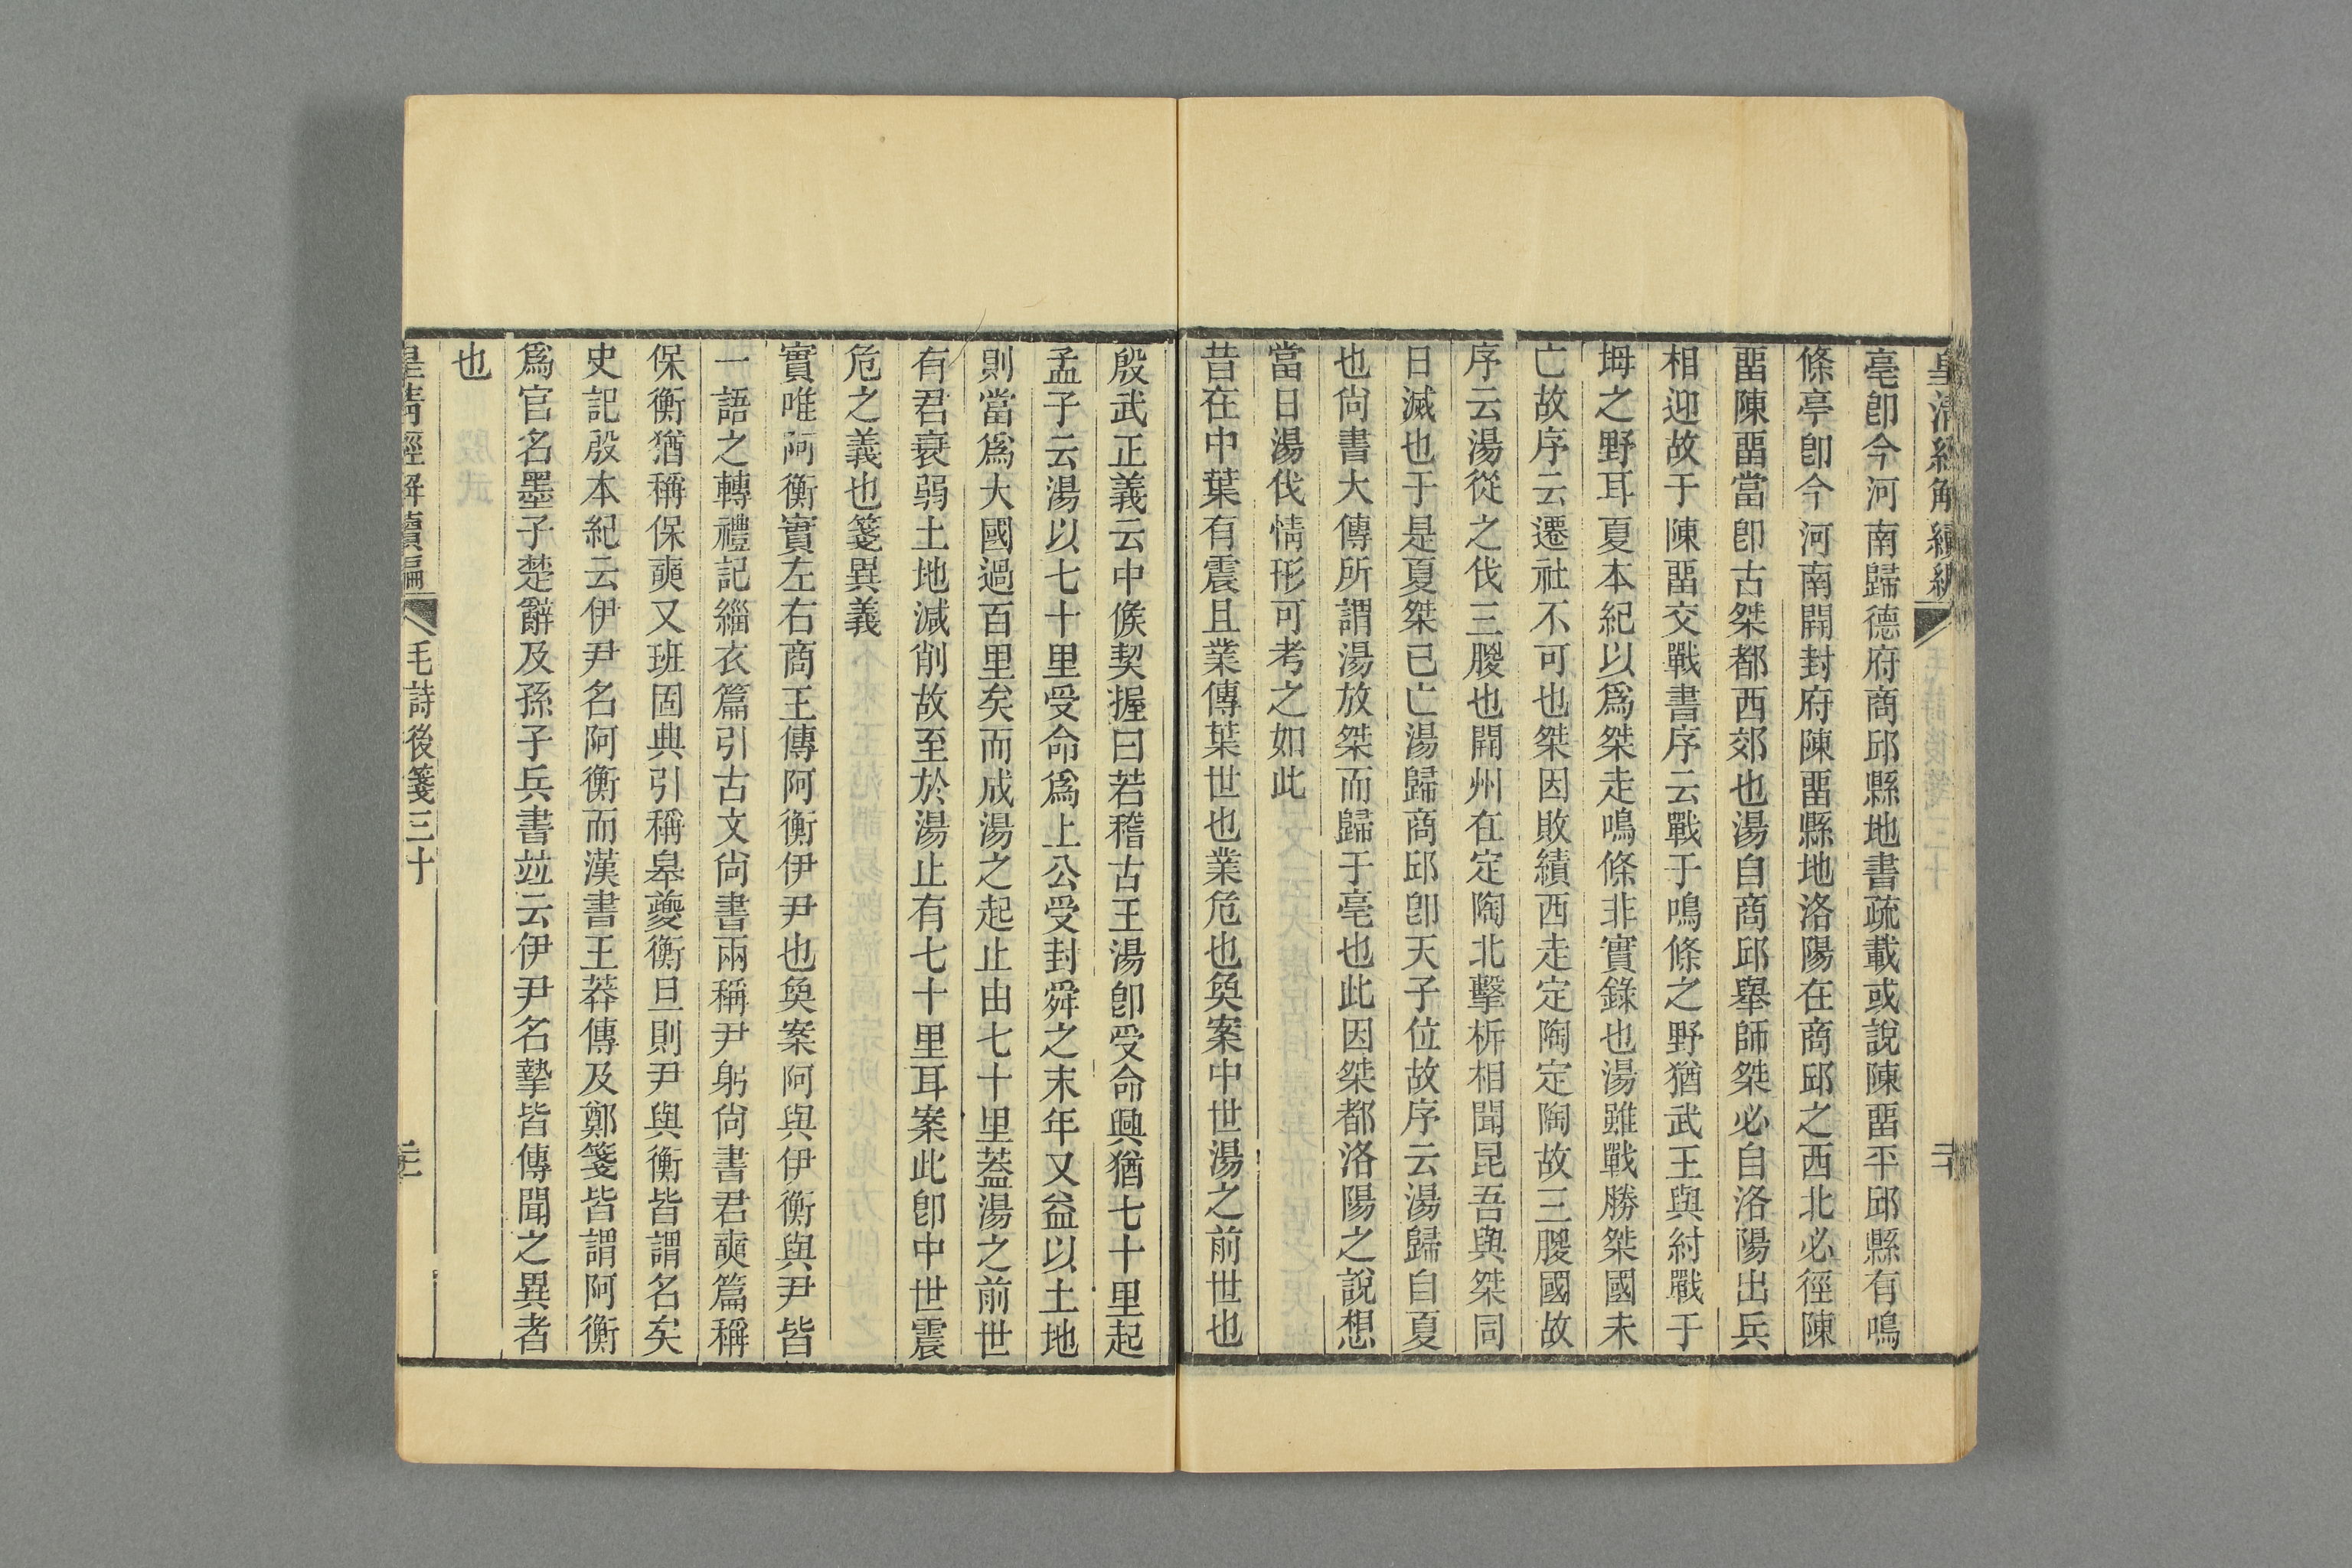 皇清經解續編
二十
亳卽今河南歸德府商邱縣地書疏載或說陳畱平邱縣有鳴
條亭卽今河南開封府陳畱縣地洛陽在商邱之西北必徑陳
畱陳畱當卽古桀都西郊也湯自商邱舉師桀必自洛陽出兵
相迎故于陳畱交戰書序云戰于鳴條之野猶武王與紂戰于
坶之野耳夏本紀以爲桀走鳴條非實錄也湯雖戰勝桀國未
亡故序云遷社不可也桀因敗績西走定陶定陶故三朡國故
序云湯從之伐三朡也開州在定陶北擊柝相聞昆吾與桀同
日滅也于是夏桀已亡湯歸商邱卽天子位故序云湯歸自夏
也尙書大傳所謂湯放桀而歸于亳也此因桀都洛陽之說想
當日湯伐情形可考之如此
昔在中葉有震且業傳葉世也業危也奐案中世湯之前世也
殷武正義云中候契握曰若稽古王湯卽受命興猶七十里起
孟子云湯以七十里受命爲上公受封舜之末年又益以土地
則當爲大國過百里矣而成湯之起止由七十里蓋湯之前世
有君衰弱土地減削故至於湯止有七十里耳案此卽中世震
危之義也箋異義
實唯阿衡實左右商王傳阿衡伊尹也奐案阿與伊衡與尹皆
一語之轉禮記緇衣篇引古文尙書兩稱尹躬尙書君奭篇稱
保衡猶稱保奭又班固典引稱皋夔衡旦則尹與衡皆謂名矣
史記殷本紀云伊尹名阿衡而漢書王莽傳及鄭箋皆謂阿衡
爲官名墨子楚辭及孫子兵書竝云伊尹名摯皆傳聞之異者
也
皇淸經解續編
毛詩後箋三十